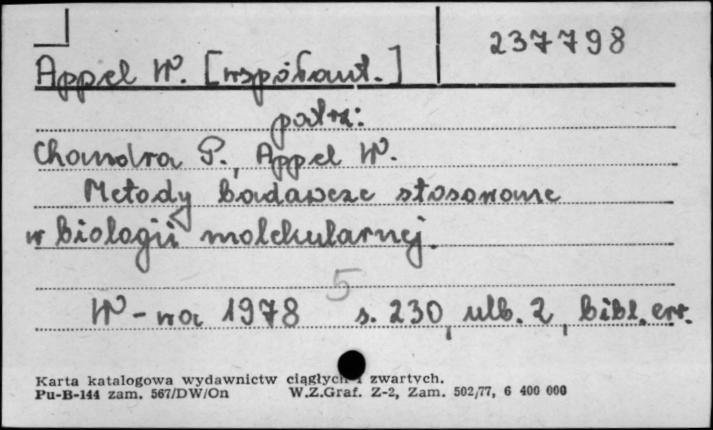 237798
Appel W. [współaut.]
patrz:
Chandra P., Appel W.
Metody badawcze stosowane
w biologii molekularnej.
5
W-wa 1978 s. 230, ulb. 2, bibl. err.
Karta katalogowa wydawnictw ciągłych i zwartych.
Pu-B-144 zam. 567/DW/On W.Z.Graf. Z-2, Zam. 502/77, 6 400 000